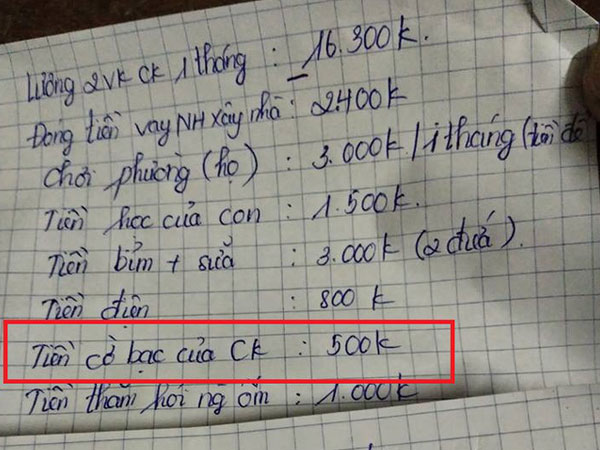 Lương 2VK CK 1 tháng : 16.300k.
Đóng tiền vay NH xây nhà : 2400k
Chơi phường (họ) : 3.000k / 1 tháng (tiền để
Tiền học của con : 1.500k.
Tiền bỉm + sữa : 3.000k (2 đứa).
Tiền điện : 800k
Tiền cờ bạc của CK : 500k
Tiền thăm hỏi ng ốm : 1.000k